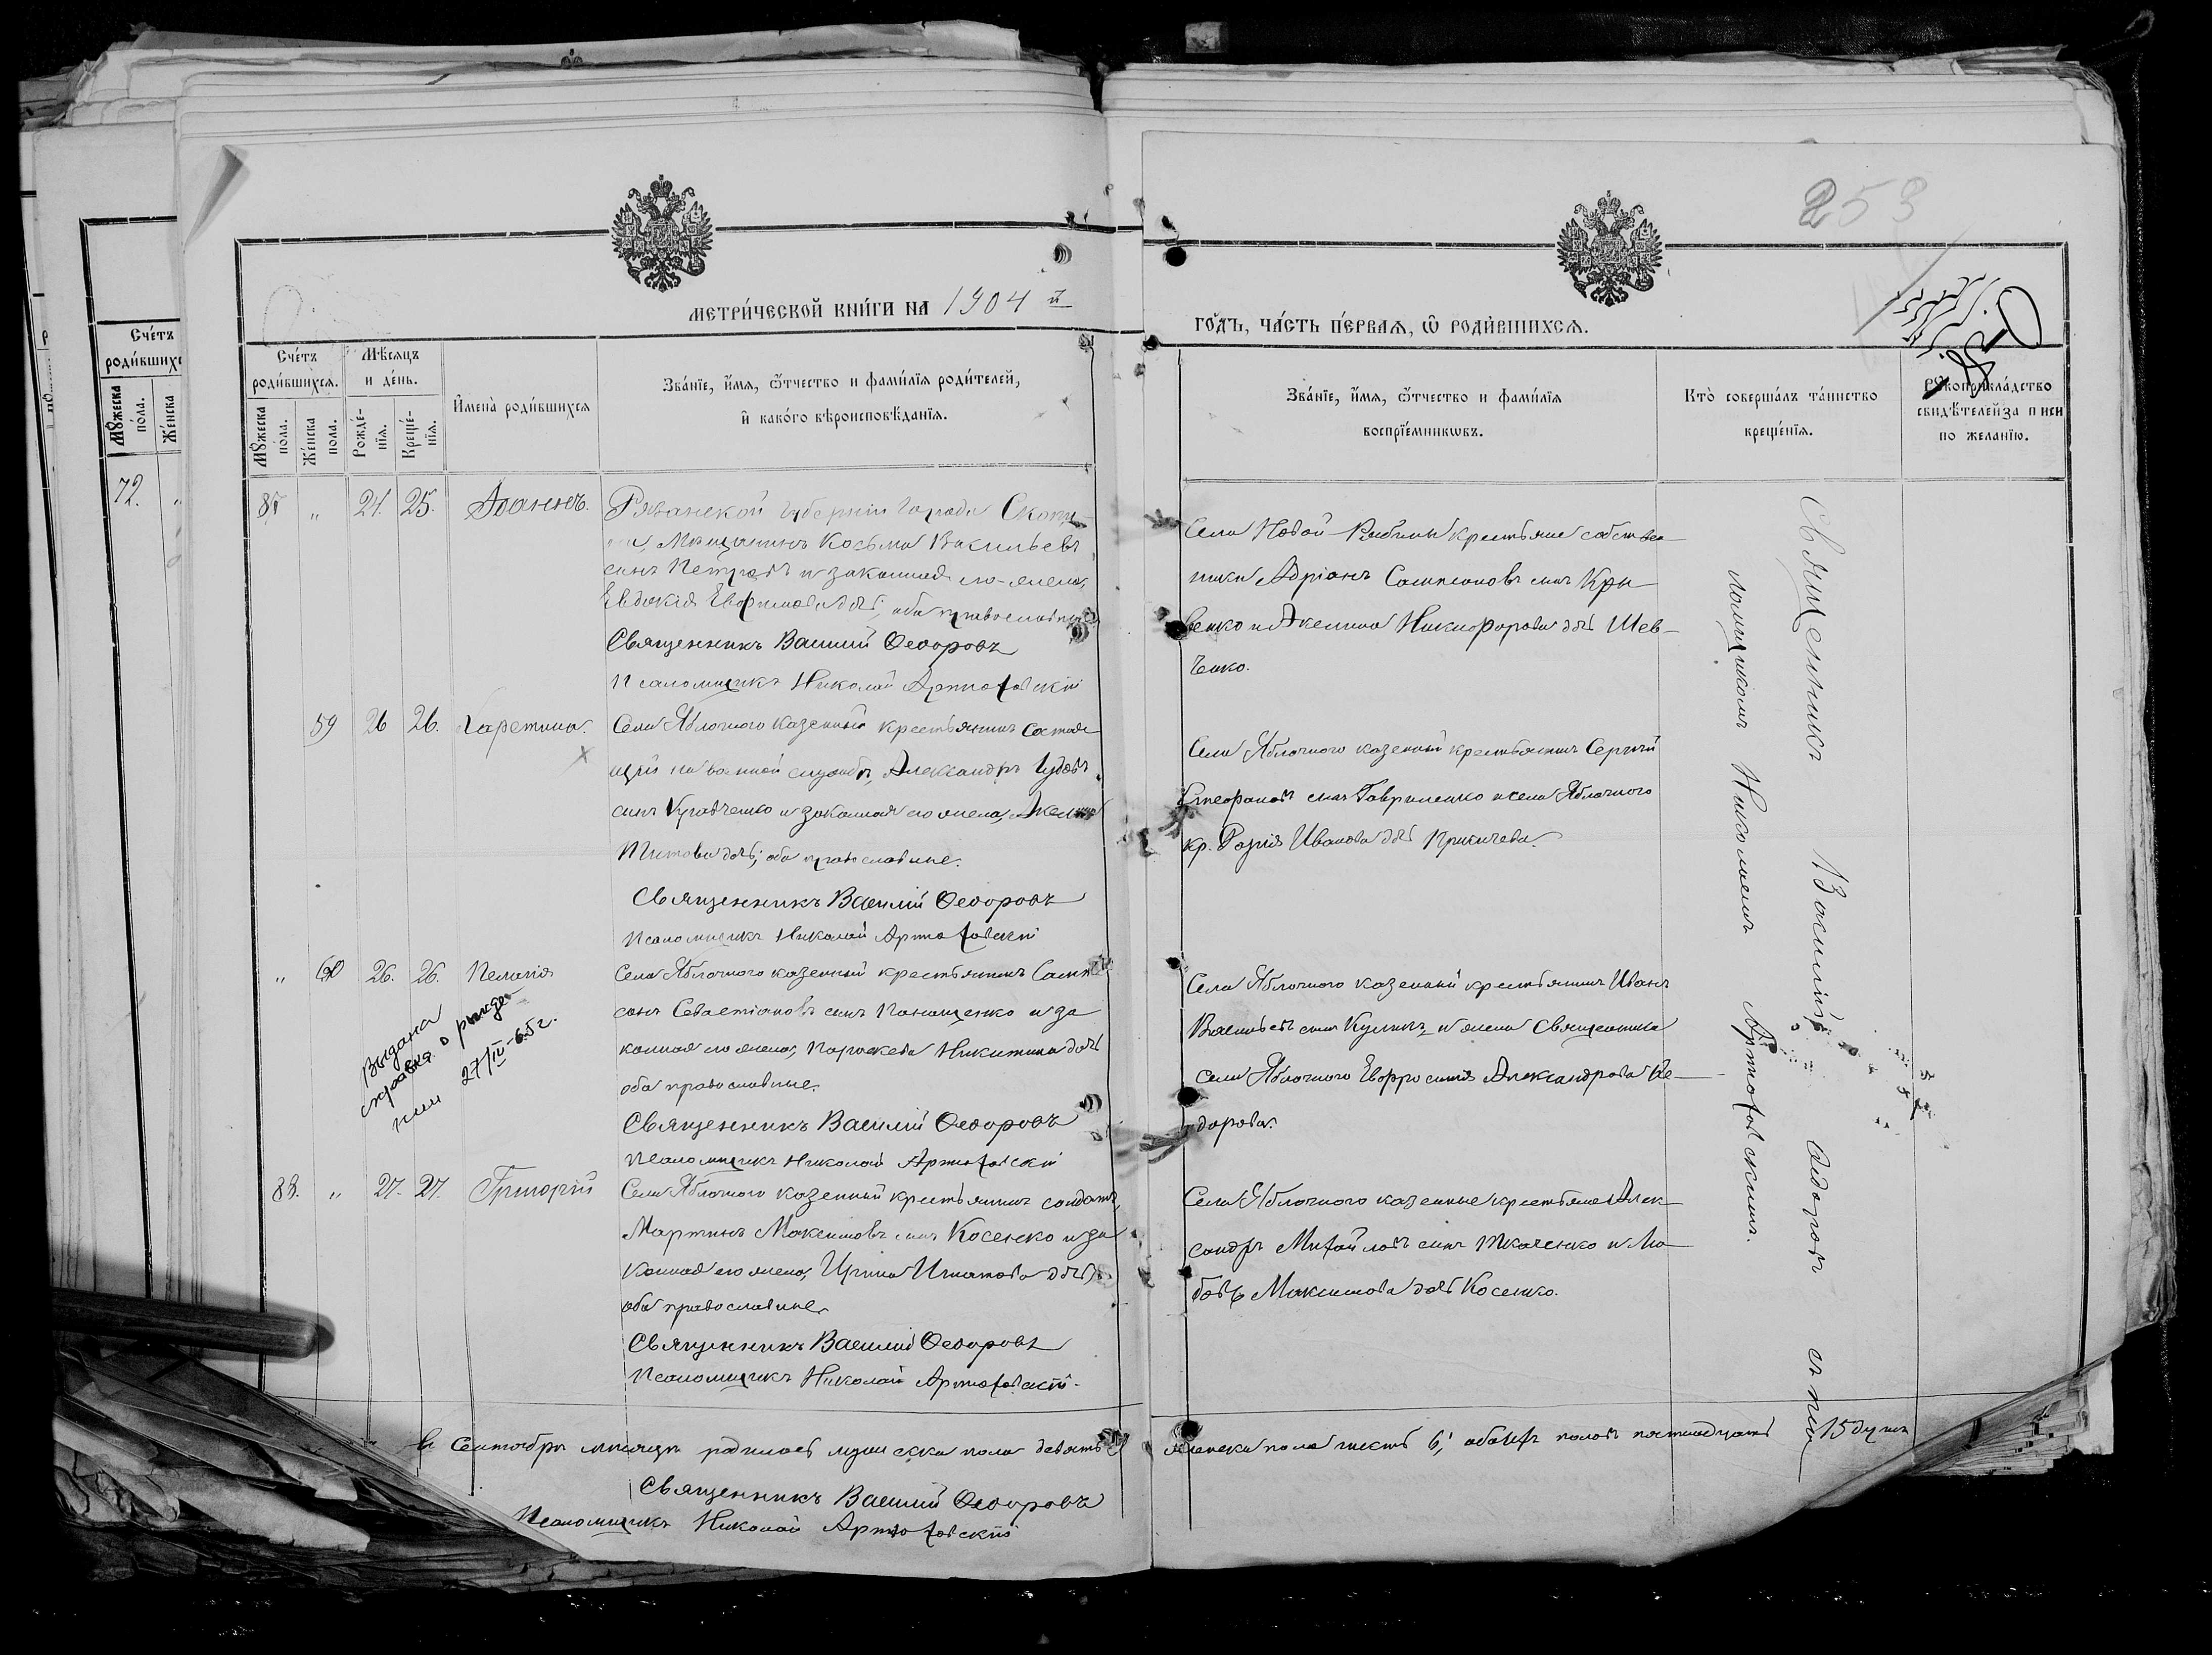 253
МЕТРИЧЕСКОЙ КНИГИ НА 1904 й
ГОДЪ, ЧАСТЬ ПЕРВАЯ, Ѡ РОДИВШИХСЯ.
Счетъ родившихся.
Мѹжеска пола.
Женска пола.
Мѣсяцъ и день.
Рожденїя.
Крещенїя.
Имена родившихся
Званїе, имя, ѿчество и фамилїя родителей,
и какого вѣроисповѣданїя.
Званїе, имя, ѿчество и фамилїя
воспрїемникѡвъ.
Кто совершалъ таинство
крещенїя.
Рѹкоприкладство
свидѣтелей записи
по желанїю.
Счетъ
Мѹжеска пола.
Женска
72. „
„ 25. Іоаннъ.
Рязанской губерніи города Скопи-
на, Мѣщанинъ Косьма Васильевъ
сынъ Петровъ и законная его жена,
Евдокія Евфимова дчь; оба православные
Священникъ Василій Ѳеодоровъ
Псаломщикъ Николай Артюховскій
Села Новой-Рябины крестьяне собствен-
ники Адріанъ Сампсоновъ сынъ Кри-
венко и Акелина Никифорова дчь Шев-
ченко.
59 26 26. Харетина.
Села Яблочного казенный крестьянинъ состоя-
щій на военной службѣ, Александръ
сынъ Кравченко и законная его жена,
Титова дчь; оба православные.
Священникъ Василій Ѳеодоровъ
Псаломщикъ Николай Артюховскій
Села Яблочного казенный крестьянинъ Сергѣй
Стефановъ сынъ Гавриленко и села Яблочного
кр. Иванова дчь
„ 60 26. 26. Пелагія
Села Яблочного казенный крестьянинъ Самп-
сонъ Севастіановъ сынъ Понащенко и за-
конная его жена, Параскева Никитина дчь
оба православные.
Священникъ Василій Ѳеодоровъ
Псаломщикъ Николай Артюховскій
Выдана
справка о рожде-
нии 27/IV-65 г.
Села Яблочного казенный крестьянинъ Иванъ
Васильевъ сынъ Куликъ и жена Священника
села Яблочного Евфросинія Александрова Ѳе-
дорова.
88. „ 27. 27. Григорій
Села Яблочного казенный крестьянинъ солдатъ
Мартинъ Максимовъ сынъ Косенко и за-
конная его жена, Ирина Игнатова дчь,
оба православные.
Священникъ Василій Ѳеодоровъ
Псаломщикъ Николай Артюховскій.
Села Яблочного казенные крестьяне Алек-
сандръ Михайловъ сынъ Ткаченко и Лю-
бовь Максимова дчь Косенко.
Священникъ Василій Ѳедоровъ съ пса-
ломщикомъ Николаемъ Артюховскимъ.
Въ Сентябрѣ мѣсяцѣ родилось мужеска пола девять 9, женска пола шесть 6; обоихъ половъ пятнадцать 15 душъ
Священникъ Василій Ѳеодоровъ
Псаломщикъ Николай Артюховскій